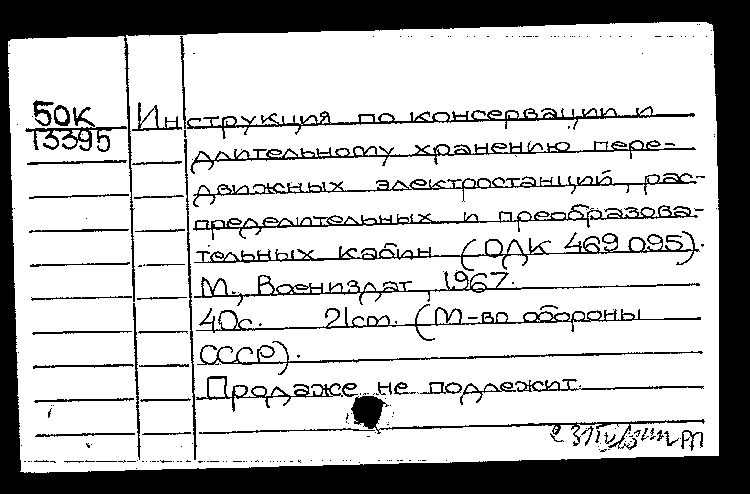 50К Инструкция по консервации и
13395 длительному хранению пере-
движных электростанций, рас-
пределительных и преобразова-
тельных кабин (ОДК 469 095).
М., Воениздат, 1967.
40с. 21см. (М-во обороны
СССР).
Продаже не подлежит.